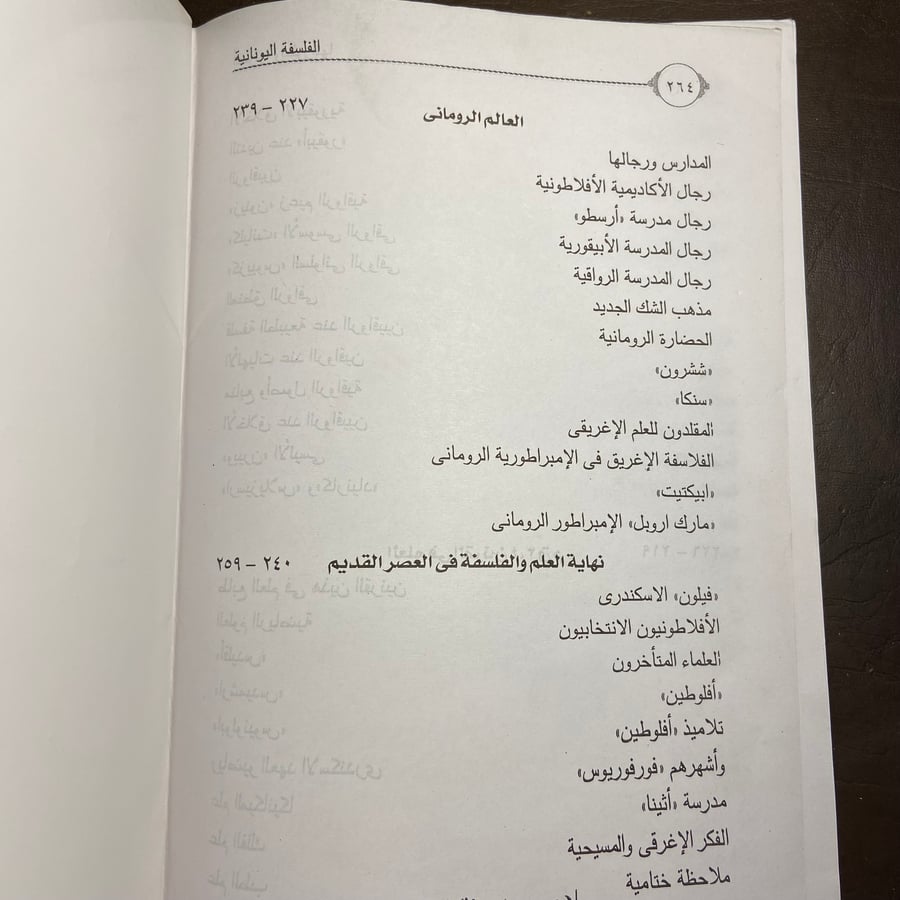 الفلسفة اليونانية
٢٦٤
العالم الرومانى ٢٢٧ – ٢٣٩
المدارس ورجالها
رجال الأكاديمية الأفلاطونية
رجال مدرسة «أرسطو»
رجال المدرسة الأبيقورية
رجال المدرسة الرواقية
مذهب الشك الجديد
الحضارة الرومانية
«ششرون»
«سنكا»
المقلدون للعلم الإغريقى
الفلاسفة الإغريق فى الإمبراطورية الرومانى
«ابيكتيت»
«مارك اروبل» الإمبراطور الرومانى
نهاية العلم والفلسفة فى العصر القديم ٢٤٠ – ٢٥٩
«فيلون» الاسكندرى
الأفلاطونيون الانتخابيون
العلماء المتأخرون
«أفلوطين»
تلاميذ «أفلوطين»
وأشهرهم «فورفوريوس»
مدرسة «أثينا»
الفكر الإغرقى والمسيحية
ملاحظة ختامية